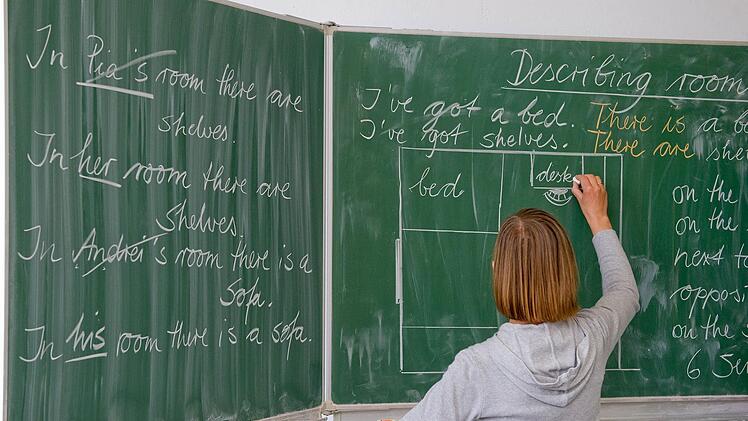 In Pia's room there are
shelves.
In her room there are
Shelves.
In Andrei's room there is a
Sofa.
In his room there is a sofa.
Describing room
I've got a bed. There is a be
I've got shelves. There are shel
bed
desk
on the
on the
next to
opposit
on the s
6 Sen